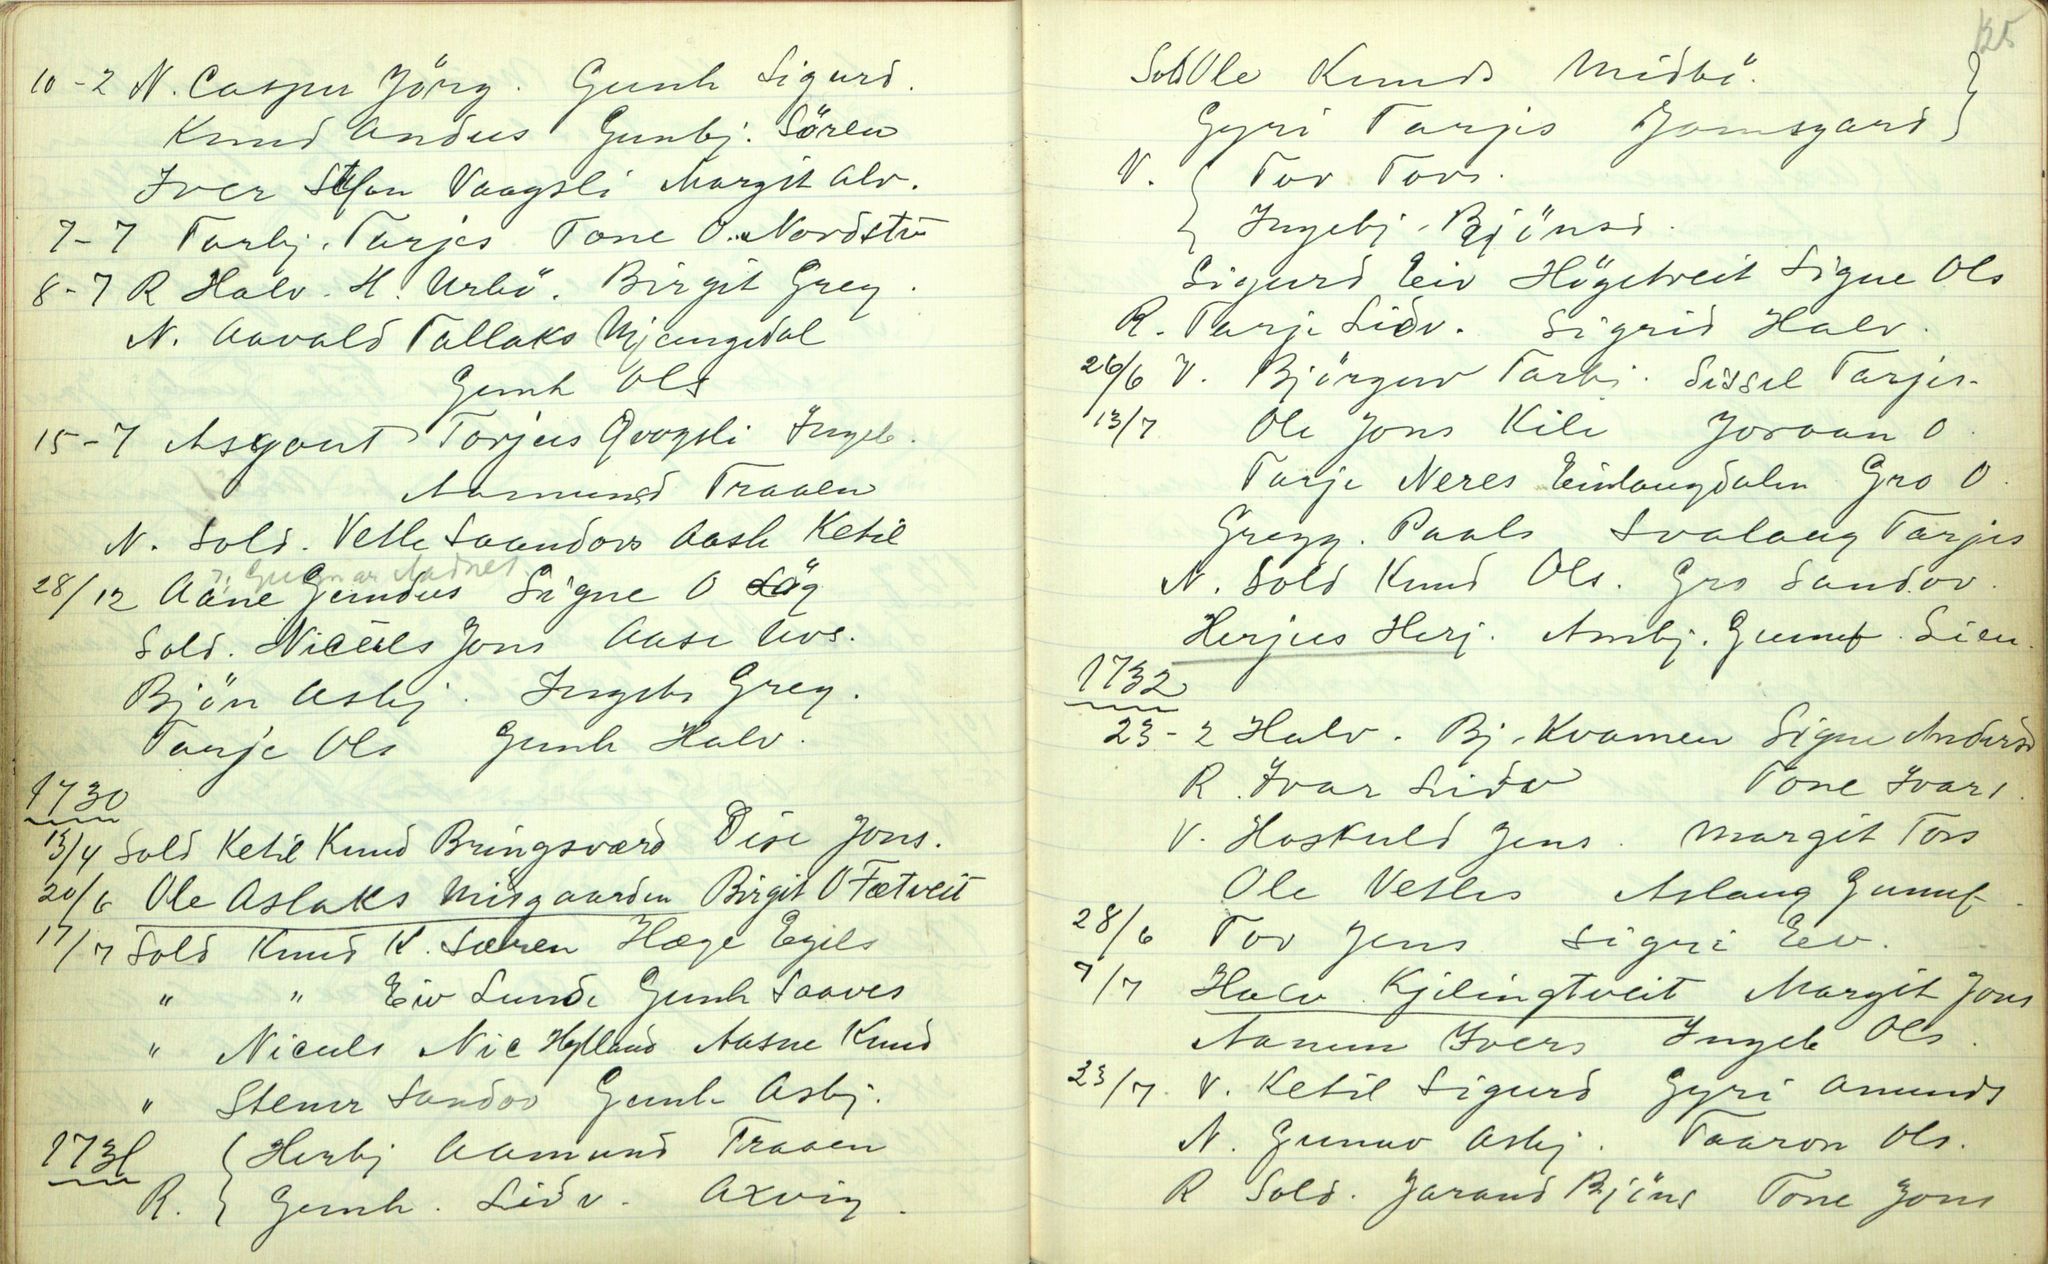 10-2 N. Casper Jörg. Gunh Sigurd.
Knud Andus Gunbj. Sören
Iver Stefan Vaagsli Margit Alv.
7-7 Tarbj. Tarjes Tone O. Nordstu
8-7 R Halv. H. Urbö. Birgit Greg.
N. Aavald Tallaks Mjaugedal
Gunh Ols
15-7 Asgout Torjus Qvogsli Ingeb.
Aamund Traaen
N. Sold. Vetle Saandovs Aash Ketil
Gunnar Aadnes
28/12 Aane Gundus Signe O
Sold. Niculs Jons Aase Avs.
Bjön Asbj. Ingeb Greg.
Tarje Ols Gunh Halv.
1730
13/4 Sold Ketil Knud Bringsværd Dise Jons.
20/6 Ole Aslaks Misgaarden Birgit O Fætveit
17/7 Sold Knud K. Særen Hæge Egils
" " Eiv Lunde Gunh Saaves
" Niculs Nic Hylland Aasne Knud
" Stener Sandov Gunh Asbj.
1731 Herbj Aamund Traaen
R. Gunh. Lidv. Axvig.
125
Sold Ole Knuds Midbö.
Gyri Tarjes Jomsgard
V. Tov Tovs.
Ingebj. Bjönsd.
Sigurd Eiv Högetveit Signe Ols
R. Tarje Lidv. Sigrid Halv.
26/6 V. Björguv Tarbj. Sissel Tarjes.
13/7 Ole Jons Kili Joraan O.
Tarje Neres Einlaugdalen Gro O.
Gregg. Paals Svalaug Tarjes
N. Sold Knud Ols. Gro Sandov.
Herjus Herj. Anbj. Gunuf. Lien.
1732
23-2 Halv. Bj. Kvamen Signe Andersd
R. Ivar Lidv Tone Ivars.
V. Hoskuld Jens. Margit Tors
Ole Vetles Aslaug Gunuf.
28/6 Tov Jens Sigri Eiv.
7/7 Halv Kjelingtveit Margit Jons
Aanun Ivers Ingeb Ols.
23/7. V. Ketil Sigurd Gyri Amunds
N. Gunuv Asbj. Taaron Ols.
R Sold. Jarand Bjöns Tone Jons